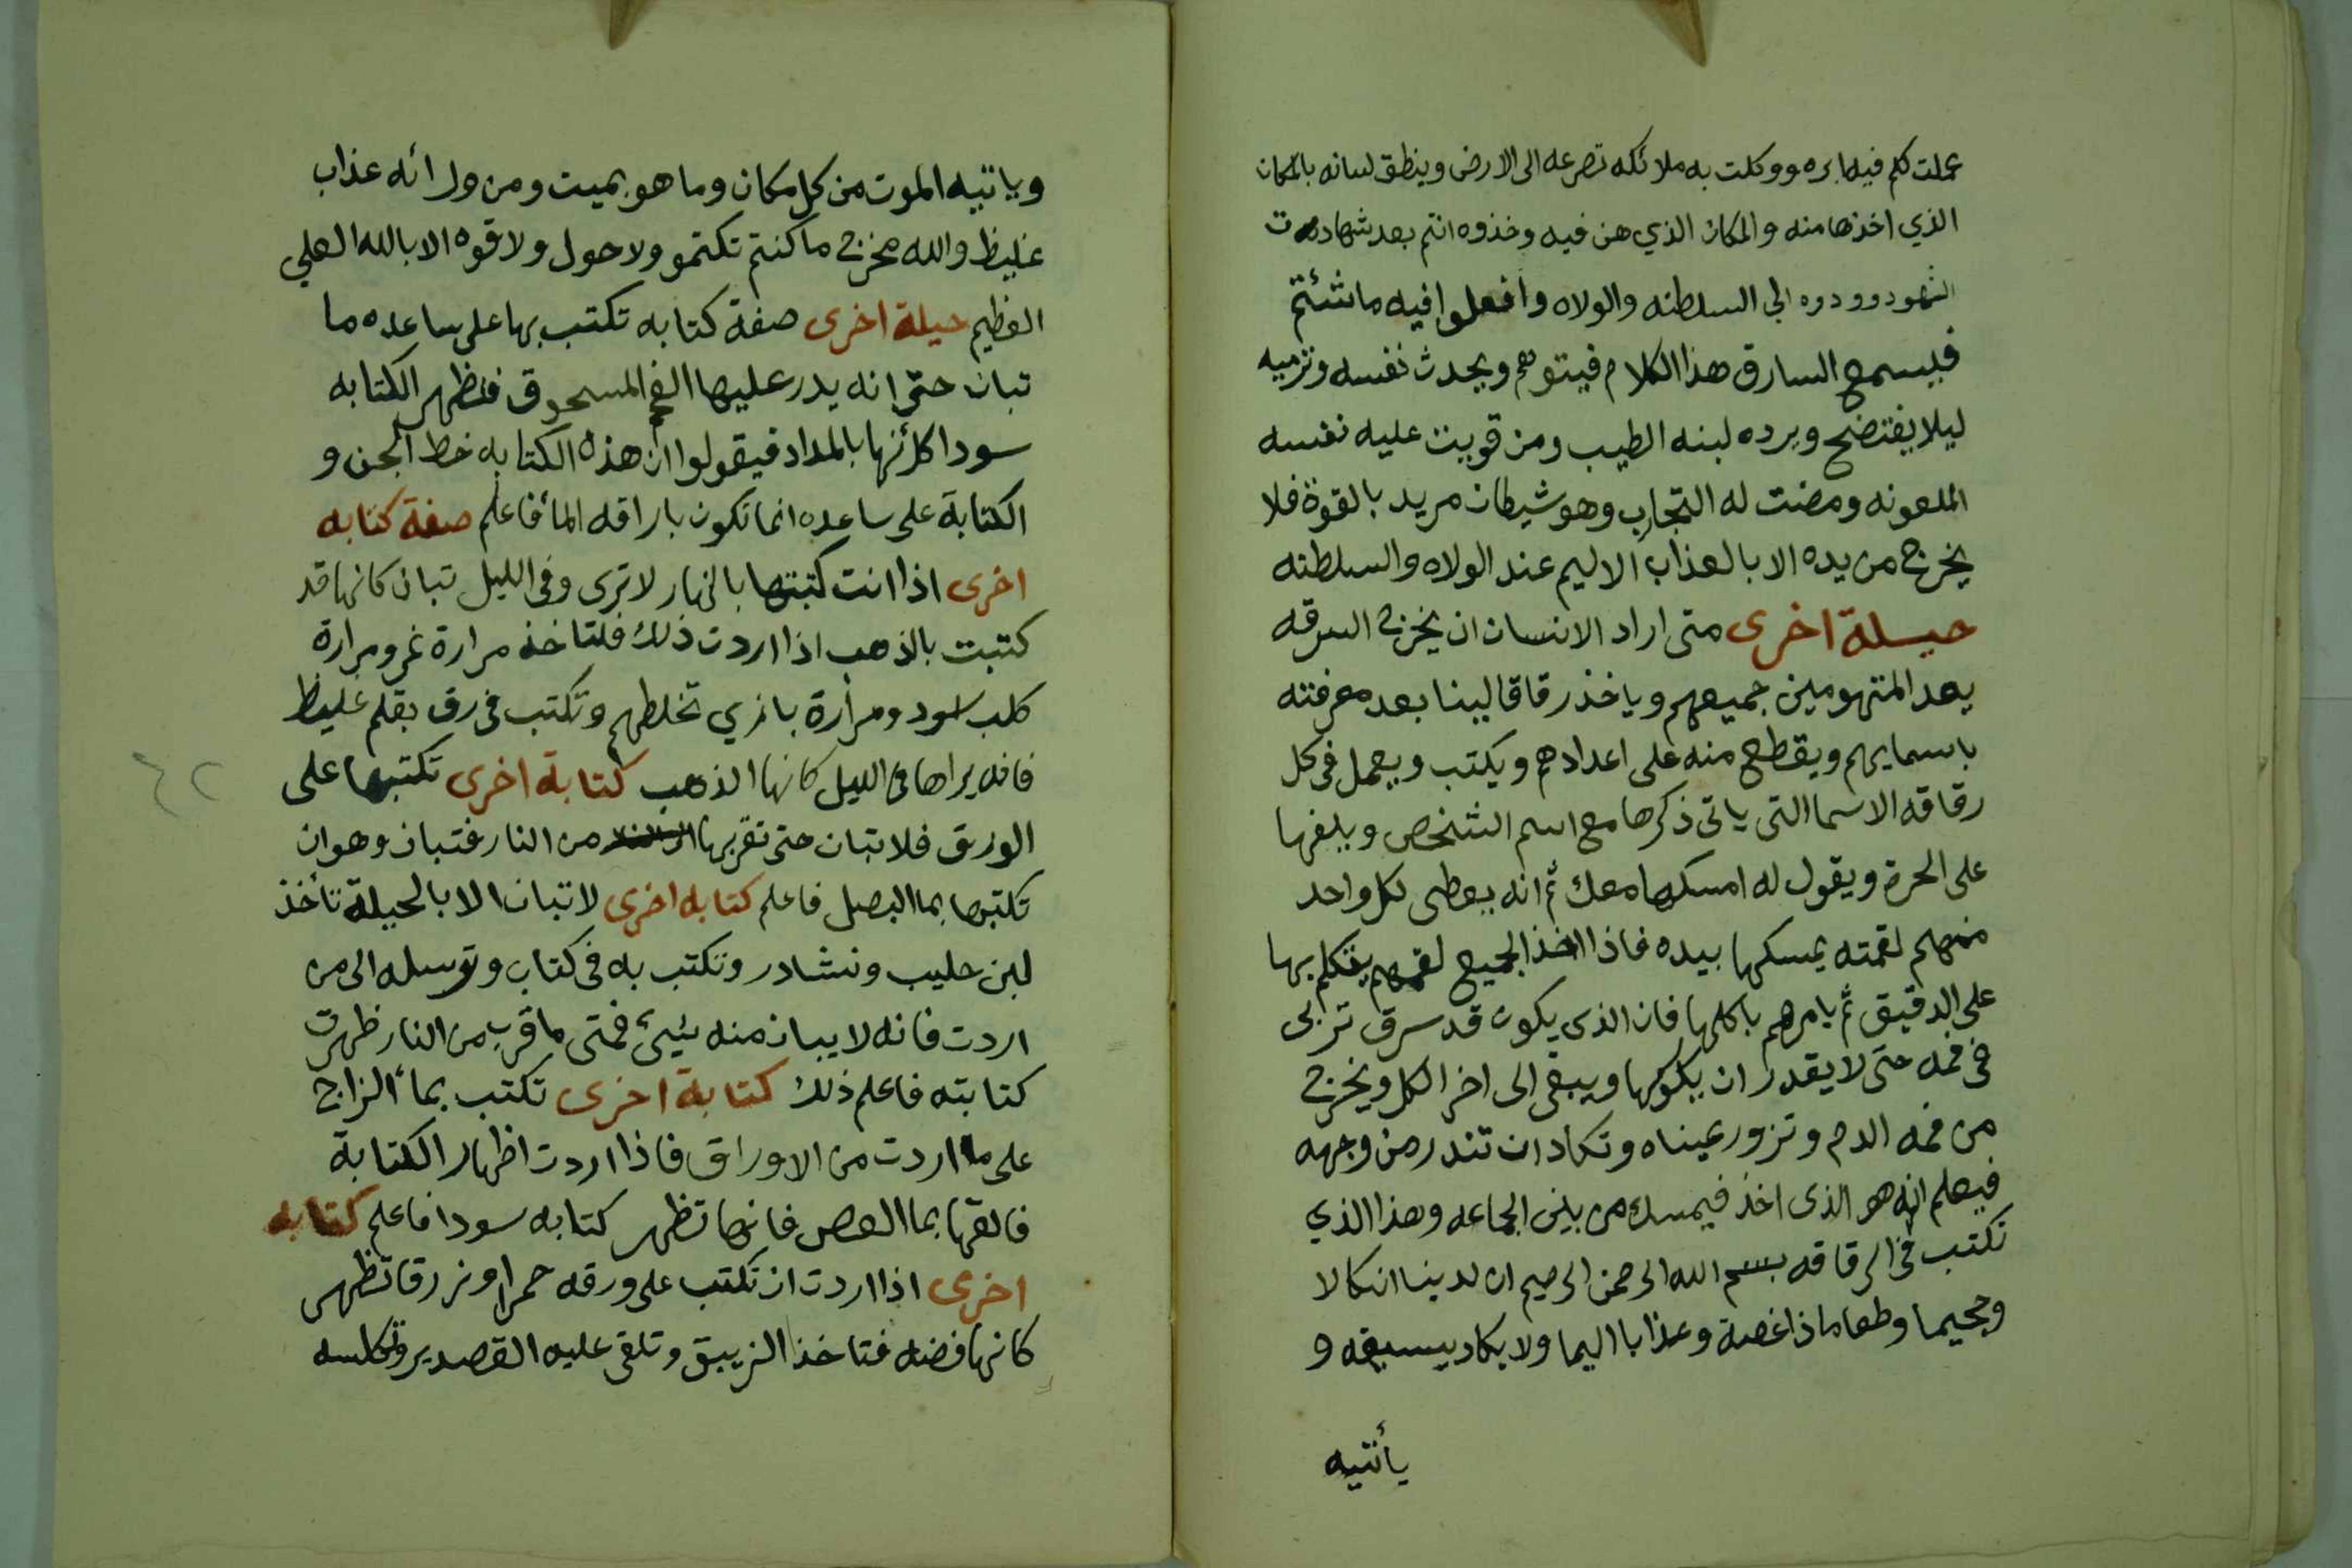 عملت لكم فيها بره ووكلت به ملائكه تصرعه الى الارض وينطق لسانه بالمكان
الذي اخذها منه والمكان الذي هن فيه وخذوه انتم بعد شهادت
الشهود وودوه الى السلطنه والولاه وافعلوا فيه ما شئتم
فيسمع السارق هذا الكلام فيتوهم ويحدث نفسه وترميه
ليلا يفتضح ويرده لبنه الطيب ومن قويت عليه نفسه
الملعونه ومضت له التجارب وهو شيطان مريد بالقوة فلا
يخرج من يده الا بالعذاب الاليم عند الولاه والسلطنه
حيلة اخرى متى اراد الانسان ان يخرج السرقه
يعد المتهومين جميعهم وياخذ رقاقا لينا بعد معرفته
باسمايهم ويقطع منه على اعدادهم ويكتب ويعمل فى كل
رقاقه الاسما التى ياتى ذكرها مع اسم الشخص ويلفها
على الحرة ويقول له امسكها معك ثم انه يعطى لكل واحد
منهم لقمته يمسكها بيده فاذا اخذ الجميع لقمهم يتكلم بها
على الدقيق ثم يامرهم باكلها فان الذى يكون قد سرق تربى
فى فمه حتى لا يقدر ان يلوكها ويبقى الى اخر الكل ويخرج
من فمه الدم وتزور عيناه وتكاد ان تندر من وجهه
فيعلم انه هو الذى اخذ فيمسك من بين الجماعه وهذا الذي
تكتب فى الرقاقه بسم الله الرحمن الرحيم ان لدينا انكالا
وجحيما وطعاما ذا غصة وعذابا اليما ولا يكاد يسيغه و
يأتيه
وياتيه الموت من كل مكان وما هو بميت ومن ورائه عذاب
غليظ والله مخرج ما كنتم تكتمو ولا حول ولا قوه الا بالله العلي
العظيم حيلة اخرى صفة كتابه تكتب بها على ساعده ما
تبان حتى انه يدر عليها الفحم المسحوق فتظهر الكتابه
سودا كانها بالمداد فيقولوا ان هذه الكتابه خط الجن و
الكتابة على ساعده انما تكون باراقه الما فاعلم صفة كتابه
اخرى اذا انت كتبتها بالنهار لا ترى وفى الليل تبان كانها قد
كتبت بالذهب اذا اردت ذلك فلتاخذ مرارة نمر ومرارة
كلب اسود ومرارة بازي تخلطهم وتكتب فى رق بقلم غليظ
فانه يراها فى الليل كانها الذهب كتابة اخرى تكتبها على
الورق فلا تبان حتى تقربها من النار فتبان وهو ان
تكتبها بما البصل فاعلم كتابه اخرى لا تبان الا بالحيلة تأخذ
لبن حليب ونشادر وتكتب به فى كتاب وترسله الى من
اردت فانه لا يبان منه شيئ فمتى ما قرب من النار ظهرت
كتابته فاعلم ذلك كتابة اخرى تكتب بماء الزاج
على ما اردت من الاوراق فاذا اردت اظهار الكتابة
فالقها بما العفص فانها تظهر كتابه سودا فاعلم كتابه
اخرى اذا اردت ان تكتب على ورقه حمرا او زرقا تظهر
كانها فضه فتاخذ الزيبق وتلقى عليه القصدير وتكلسه
٤٢